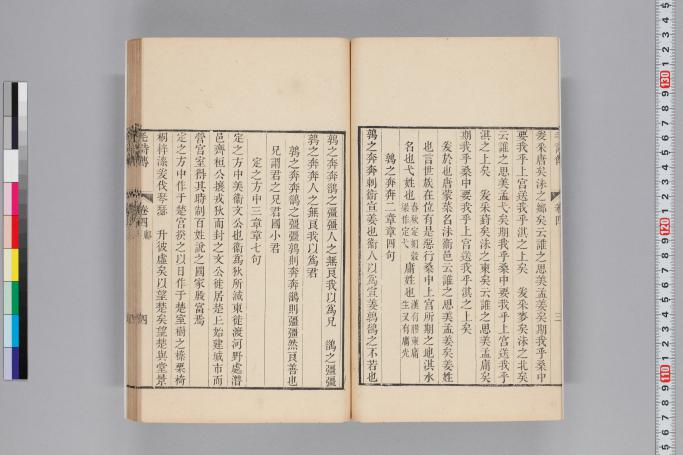 爰采唐矣沬之鄉矣云誰之思美孟姜矣期我乎桑中
要我乎上宮送我乎淇之上矣　爰采麥矣沬之北矣
云誰之思美孟弋矣期我乎桑中要我乎上宮送我乎
淇之上矣　爰采葑矣沬之東矣云誰之思美孟庸矣
期我乎桑中要我乎上宮送我乎淇之上矣
爰於也唐蒙菜名沬衞邑云誰之思美孟姜矣姜姓
也言世族在位有是惡行桑中上宮所期之地淇水
名也弋姓也
庸姓也
鶉之奔奔二章章四句
鶉之奔奔刺衞宣姜也衞人以爲宣姜鶉鵲之不若也
鶉之奔奔鵲之彊彊人之無良我以爲兄　鵲之彊彊
鶉之奔奔人之無良我以爲君
鶉之奔奔鵲之彊彊鶉則奔奔鵲則彊彊然良善也
兄謂君之兄君國小君
定之方中三章章七句
定之方中美衞文公也衞爲狄所滅東徙渡河野處漕
邑齊桓公攘戎狄而封之文公徙居楚丘始建城市而
營宮室得其時制百姓說之國家殷富焉
定之方中作于楚宮揆之以日作于楚室樹之榛栗椅
桐梓漆爰伐琴瑟　升彼虛矣以望楚矣望楚與堂景
毛詩傳
卷四
四